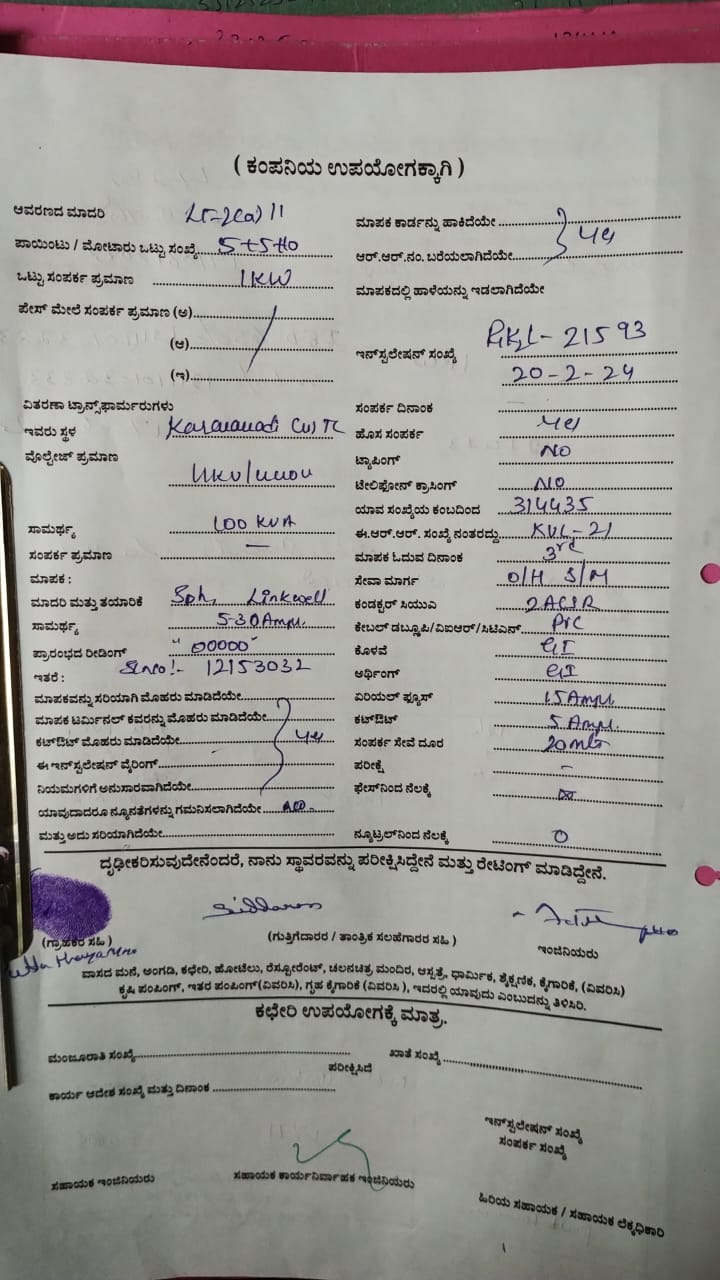 ( ಕಂಪನಿಯ ಉಪಯೋಗಕ್ಕಾಗಿ )
ಆವರಣದ ಮಾದರಿ LT-2(a) 11
ಪಾಯಿಂಟು / ಮೋಟಾರು ಒಟ್ಟು ಸಂಖ್ಯೆ 5+5+0
ಒಟ್ಟು ಸಂಪರ್ಕ ಪ್ರಮಾಣ 1KW
ಪೇಸ್ ಮೇಲೆ ಸಂಪರ್ಕ ಪ್ರಮಾಣ (ಅ)
(ಆ)
(ಇ)
ವಿತರಣಾ ಟ್ರಾನ್ಸ್‌ಫಾರ್ಮರುಗಳು
ಇವರು ಸ್ಥಳ
ವೊಲ್ಟೇಜ್ ಪ್ರಮಾಣ
ಸಾಮರ್ಥ್ಯ 100 KVA
ಸಂಪರ್ಕ ಪ್ರಮಾಣ —
ಮಾಪಕ :
ಮಾದರಿ ಮತ್ತು ತಯಾರಿಕೆ Sph, Linkwell
ಸಾಮರ್ಥ್ಯ 5-30Amp.
ಪ್ರಾರಂಭದ ರೀಡಿಂಗ್ "00000"
ಇತರೆ : Slno:- 12153032
ಮಾಪಕವನ್ನು ಸರಿಯಾಗಿ ಮೊಹರು ಮಾಡಿದೆಯೇ
ಮಾಪಕ ಟರ್ಮಿನಲ್ ಕವರನ್ನು ಮೊಹರು ಮಾಡಿದೆಯೇ
ಕಟ್‌ಔಟ್ ಮೊಹರು ಮಾಡಿದೆಯೇ yes
ಈ ಇನ್‌ಸ್ಟಲೇಷನ್ ವೈರಿಂಗ್
ನಿಯಮಗಳಿಗೆ ಅನುಸಾರವಾಗಿದೆಯೇ
ಯಾವುದಾದರೂ ನ್ಯೂನತೆಗಳನ್ನು ಗಮನಿಸಲಾಗಿದೆಯೇ NO.
ಮತ್ತು ಅದು ಸರಿಯಾಗಿದೆಯೇ
ಮಾಪಕ ಕಾರ್ಡನ್ನು ಹಾಕಿದೆಯೇ yes
ಆರ್.ಆರ್.ನಂ. ಬರೆಯಲಾಗಿದೆಯೇ
ಮಾಪಕದಲ್ಲಿ ಹಾಳೆಯನ್ನು ಇಡಲಾಗಿದೆಯೇ
ಇನ್‌ಸ್ಟಲೇಷನ್ ಸಂಖ್ಯೆ 21593
20-2-24
ಸಂಪರ್ಕ ದಿನಾಂಕ
ಹೊಸ ಸಂಪರ್ಕ yes
ಟ್ಯಾಪಿಂಗ್ NO
ಟೇಲಿಫೋನ್ ಕ್ರಾಸಿಂಗ್ NO
ಯಾವ ಸಂಖ್ಯೆಯ ಕಂಬದಿಂದ 314435
ಈ.ಆರ್.ಆರ್. ಸಂಖ್ಯೆ ನಂತರದ್ದು KVL-21
ಮಾಪಕ ಓದುವ ದಿನಾಂಕ 3rd
ಸೇವಾ ಮಾರ್ಗ O/H S/M
ಕಂಡಕ್ಟರ್ ಸಿಯುಎ 2ACSR
ಕೇಬಲ್ ಡಬ್ಲೂಪಿ/ವಿಐಆರ್/ಸಿಟಿಎಸ್ PVC
ಕೊಳವೆ GI
ಅರ್ಥಿಂಗ್ GI
ಏರಿಯಲ್ ಫ್ಯೂಸ್ 15Amp.
ಕಟ್‌ಔಟ್ 5 Amp.
ಸಂಪರ್ಕ ಸೇವೆ ದೂರ 20mts
ಪರೀಕ್ಷೆ -
ಫೇಸ್‌ನಿಂದ ನೆಲಕ್ಕೆ
ನ್ಯೂಟ್ರಲ್‌ನಿಂದ ನೆಲಕ್ಕೆ 0
ದೃಢೀಕರಿಸುವುದೇನೆಂದರೆ, ನಾನು ಸ್ಥಾವರವನ್ನು ಪರೀಕ್ಷಿಸಿದ್ದೇನೆ ಮತ್ತು ರೇಟಿಂಗ್ ಮಾಡಿದ್ದೇನೆ.
(ಗ್ರಾಹಕರ ಸಹಿ) (ಗುತ್ತಿಗೆದಾರರ / ತಾಂತ್ರಿಕ ಸಲಹೆಗಾರರ ಸಹಿ) ಇಂಜಿನಿಯರು
ವಾಸದ ಮನೆ, ಅಂಗಡಿ, ಕಛೇರಿ, ಹೋಟೆಲು, ರೆಸ್ಟೋರೆಂಟ್, ಚಲನಚಿತ್ರ ಮಂದಿರ, ಆಸ್ಪತ್ರೆ, ಧಾರ್ಮಿಕ, ಶೈಕ್ಷಣಿಕ, ಕೈಗಾರಿಕೆ, (ವಿವರಿಸಿ)
ಕೃಷಿ ಪಂಪಿಂಗ್, ಇತರ ಪಂಪಿಂಗ್(ವಿವರಿಸಿ), ಗೃಹ ಕೈಗಾರಿಕೆ (ವಿವರಿಸಿ), ಇದರಲ್ಲಿ ಯಾವುದು ಎಂಬುದನ್ನು ತಿಳಿಸಿರಿ.
ಕಛೇರಿ ಉಪಯೋಗಕ್ಕೆ ಮಾತ್ರ.
ಮಂಜೂರಾತಿ ಸಂಖ್ಯೆ ಖಾತೆ ಸಂಖ್ಯೆ
ಪರೀಕ್ಷಿಸಿದೆ
ಕಾರ್ಯ ಆದೇಶ ಸಂಖ್ಯೆ ಮತ್ತು ದಿನಾಂಕ
ಇನ್‌ಸ್ಟಲೇಷನ್ ಸಂಖ್ಯೆ
ಸಂಪರ್ಕ ಸಂಖ್ಯೆ
ಸಹಾಯಕ ಇಂಜಿನಿಯರು ಸಹಾಯಕ ಕಾರ್ಯನಿರ್ವಾಹಕ ಇಂಜಿನಿಯರು
ಹಿರಿಯ ಸಹಾಯಕ / ಸಹಾಯಕ ಲೆಕ್ಕಧಿಕಾರಿ